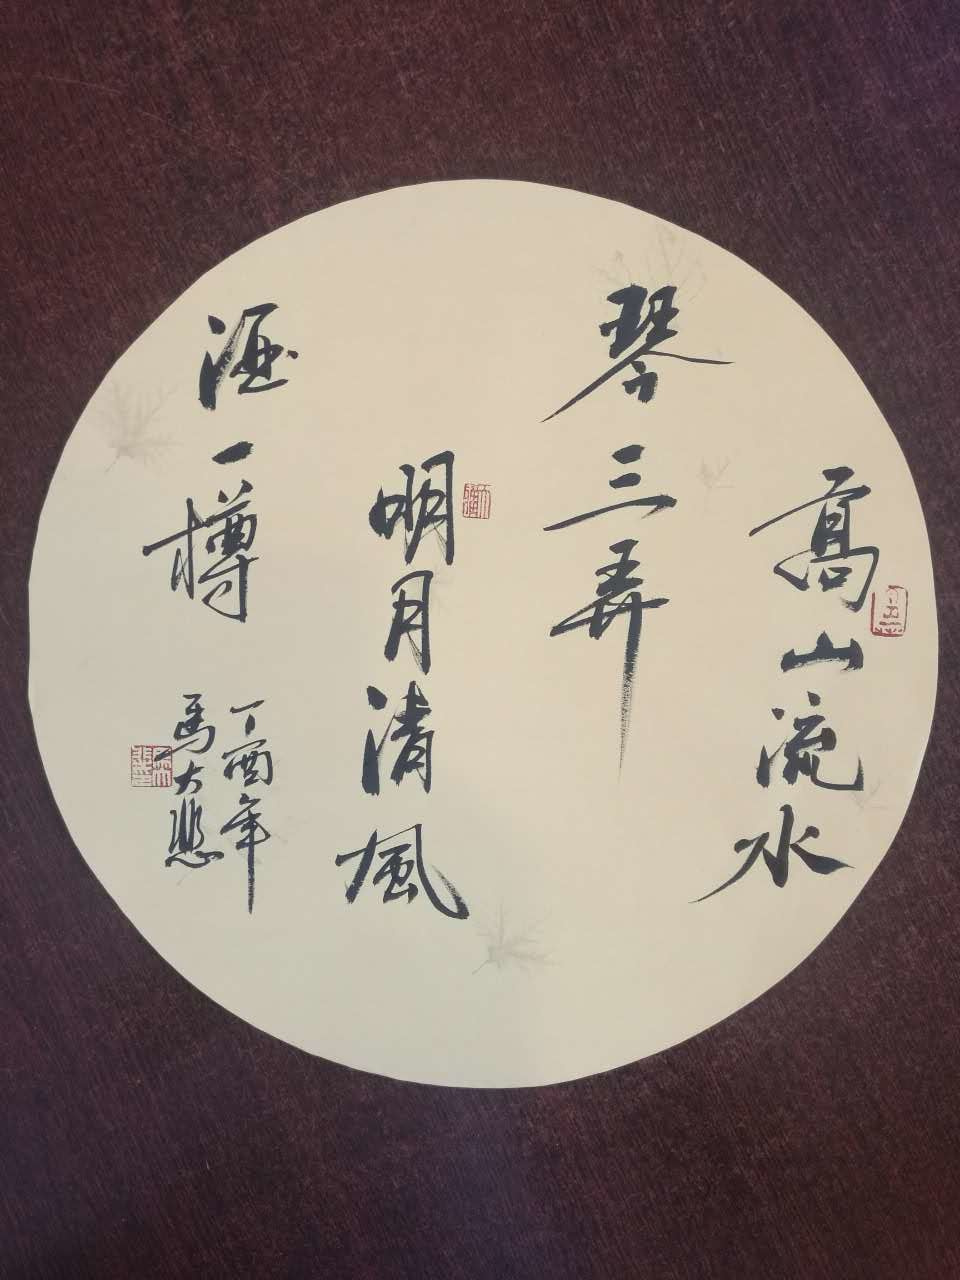 高山流水
琴三弄
明月清風
酒一樽
丁酉年
馬大悲